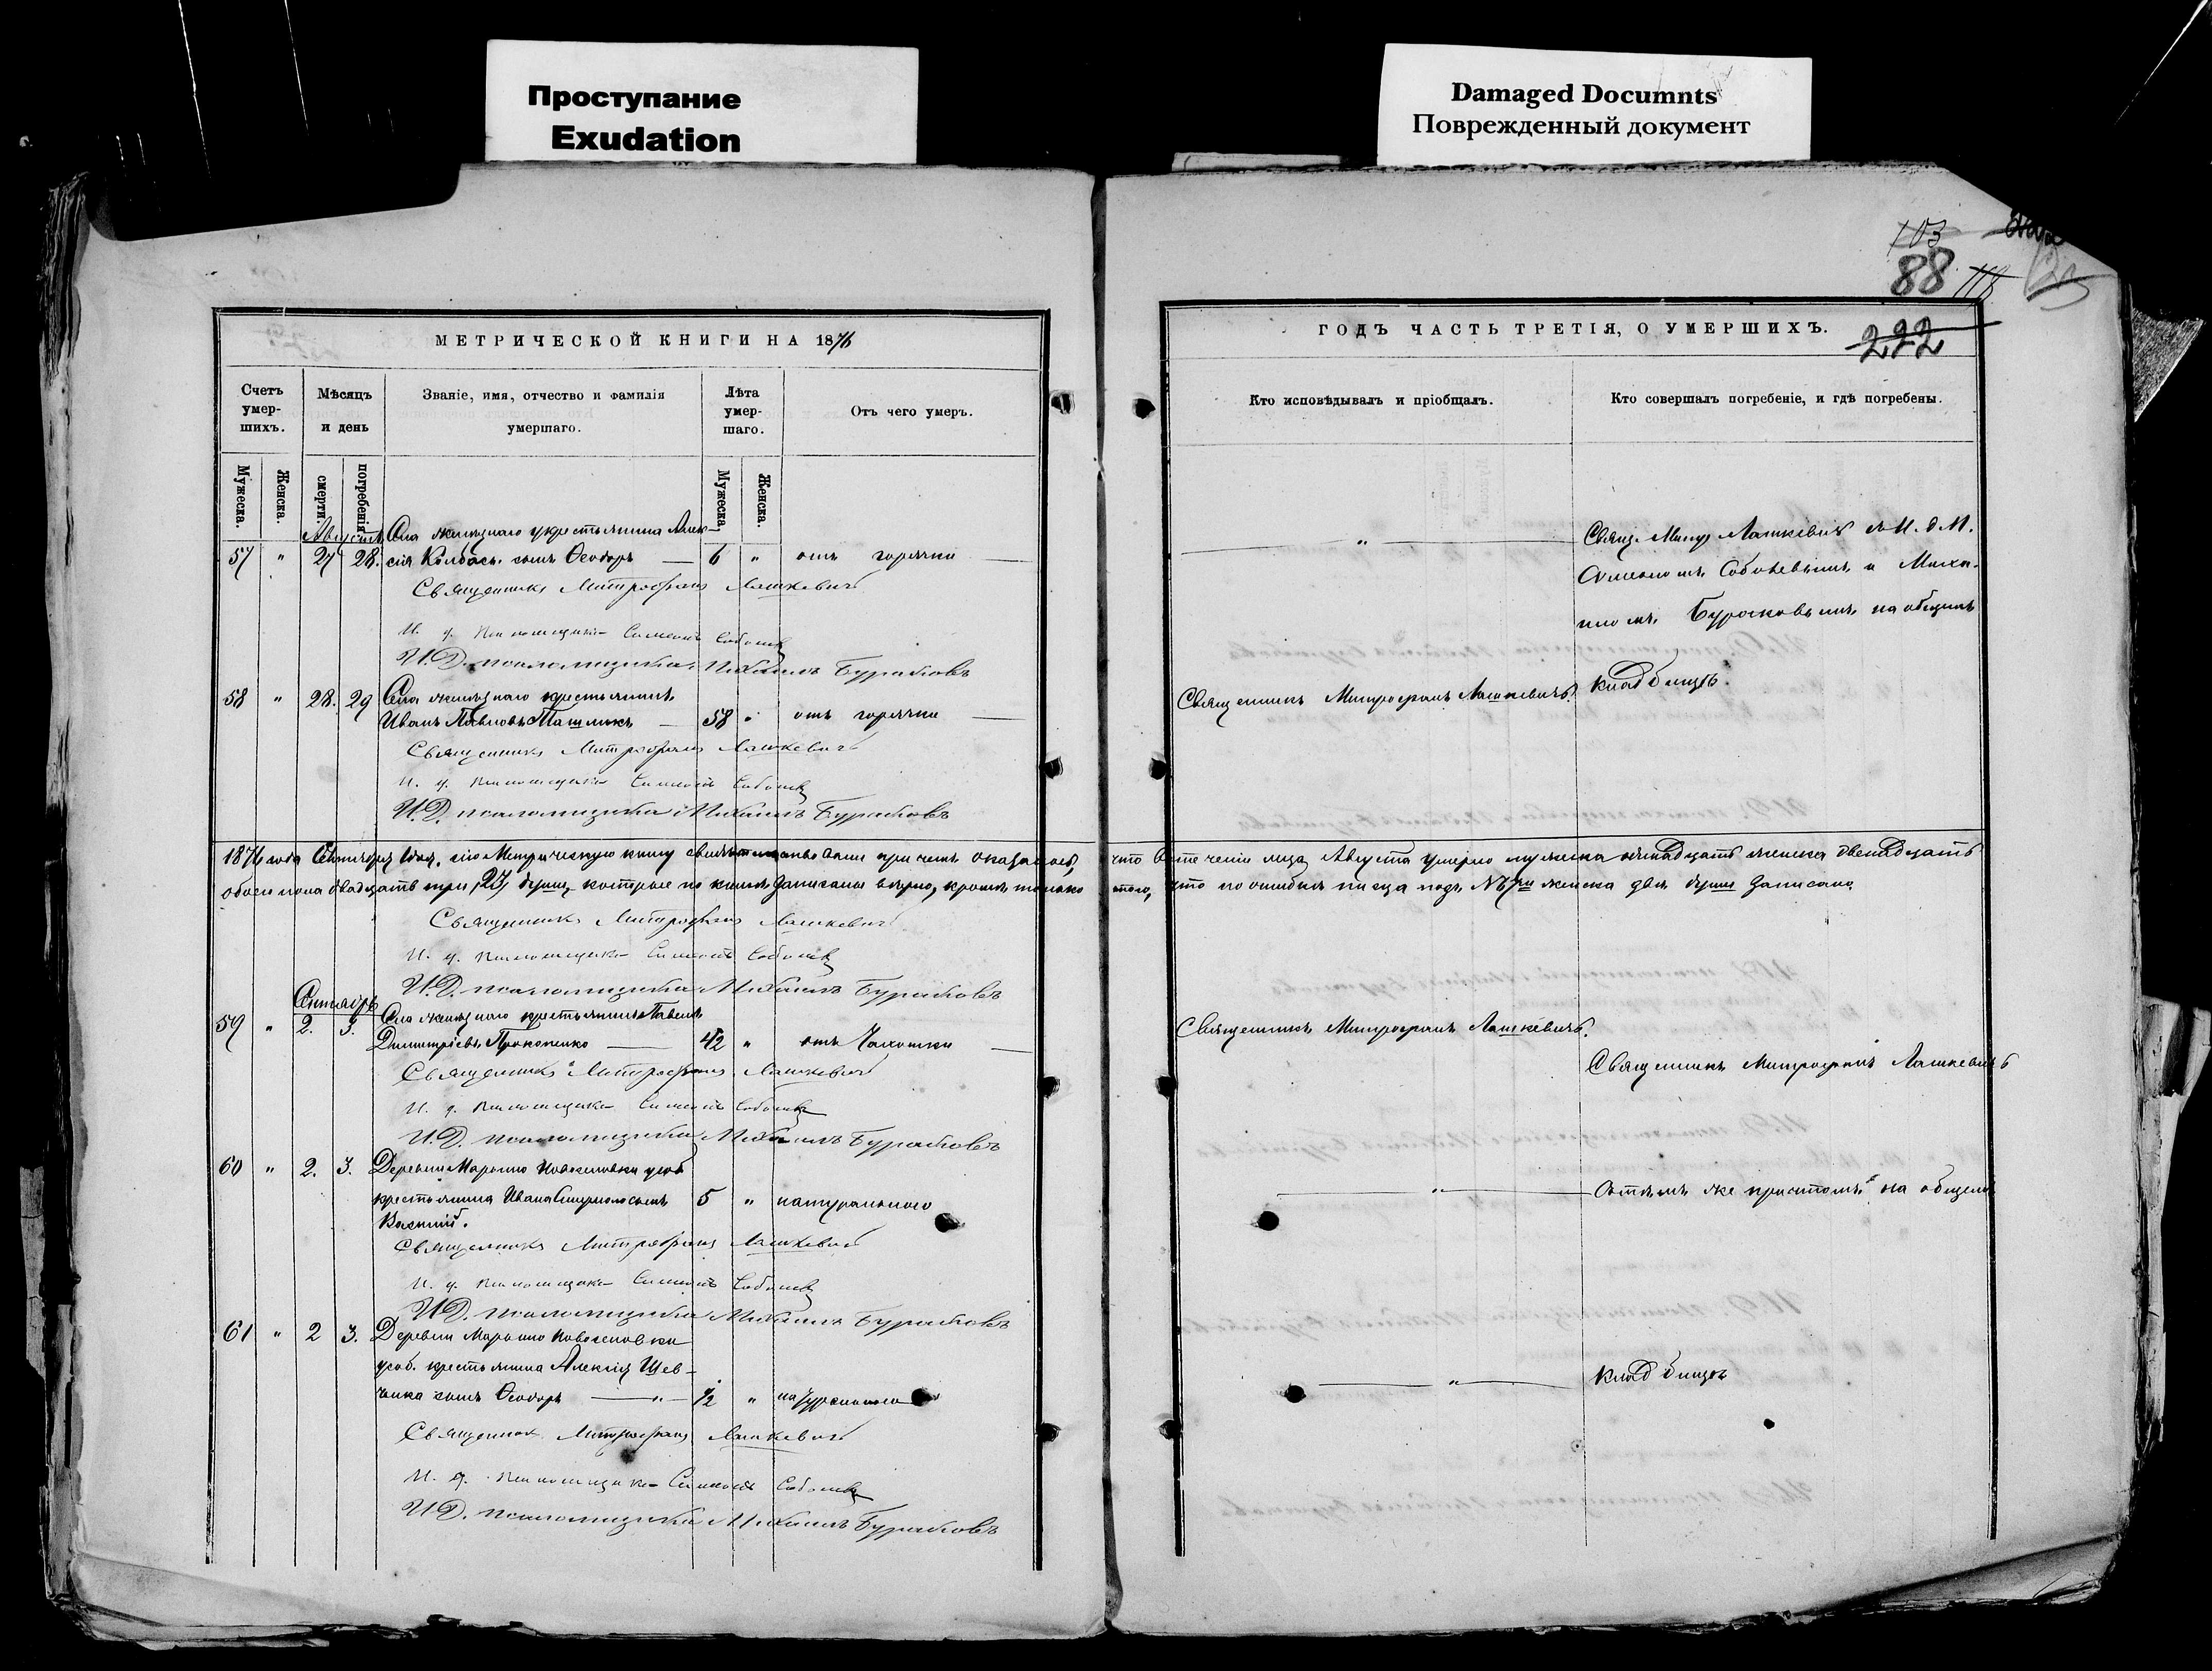 Проступание
Exudation
Damaged Documnts
Поврежденный документ
103
88
222
МЕТРИЧЕСКОЙ КНИГИ НА 1876
Счетъ умер-шихъ.
Мѣсяцъ и день
Званіе, имя, отчество и фамилія умершаго.
Лѣта умер-шаго.
Отъ чего умеръ.
Мужеска.
Женска.
смерти.
погребенія.
Мужеска.
Женска.
Августъ
Села крестьянина Алек-
57 " 27 28. сія Колбасы сынъ Ѳеодоръ — 6 " отъ горячки —
Священникъ Митрофанъ Лашкевичъ
И. д. псаломщика Симеонъ Соболевъ
И.Д. псаломщика Михаилъ Бураковъ
58 " 28. 29 Села крестьянинъ
Иванъ Павловъ Ташликъ — 58 " отъ горячки —
Священникъ Митрофанъ Лашкевичъ
И. д. псаломщика Симеонъ Соболевъ
И.Д. псаломщика Михаилъ Бураковъ
1876 года Сентября 1 дня, сію Метрическую книгу при чемъ оказалось,
обоего пола двадцать три, 23, души, которые по книгѣ записаны вѣрно, кромѣ только
Священникъ Митрофанъ Лашкевичъ
И. д. псаломщика Симеонъ Соболевъ
И.Д. псаломщика Михаилъ Бураковъ
Сентябрь
59 " 2. 3. Села крестьянинъ Павелъ
Димитріевъ Прокопенко — 42 " отъ Чахотки —
Священникъ Митрофанъ Лашкевичъ
И. д. псаломщика Симеонъ Соболевъ
И.Д. псаломщика Михаилъ Бураковъ
60 " 2. 3. Деревни Марьино Новоселовки
крестьянина Ивана сынъ 5 " натуральнаго
Василій.
Священникъ Митрофанъ Лашкевичъ
И. д. псаломщика Симеонъ Соболевъ
И.Д. псаломщика Михаилъ Бураковъ
61 " 2 3. Деревни Марьино Новоселовки
усоб. крестьянина Алексія Шев-
чика сынъ Ѳеодоръ — " — 1/2 " натуральнаго
Священникъ Митрофанъ Лашкевичъ
И. д. псаломщика Симеонъ Соболевъ
И.Д. псаломщика Михаилъ Бураковъ
ГОДЪ ЧАСТЬ ТРЕТІЯ, О УМЕРШИХЪ.
Кто исповѣдывалъ и пріобщалъ.
Кто совершалъ погребеніе, и гдѣ погребены.
— " — Свящ. Митр. Лашкевичъ съ И. д. П.
Симеономъ Соболевымъ и Миха-
иломъ Бураковымъ на общемъ
Священникъ Митрофанъ Лашкевичъ. кладбищѣ.
что въ теченіи мѣсяца Августа умерло мужеска женска двенадцать
того, что по ошибкѣ писца подъ женска двѣ души записано.
Священникъ Митрофанъ Лашкевичъ.
Священникъ Митрофанъ Лашкевичъ
— " — Съ тѣмъ же причтомъ на общемъ
— " — кладбищѣ